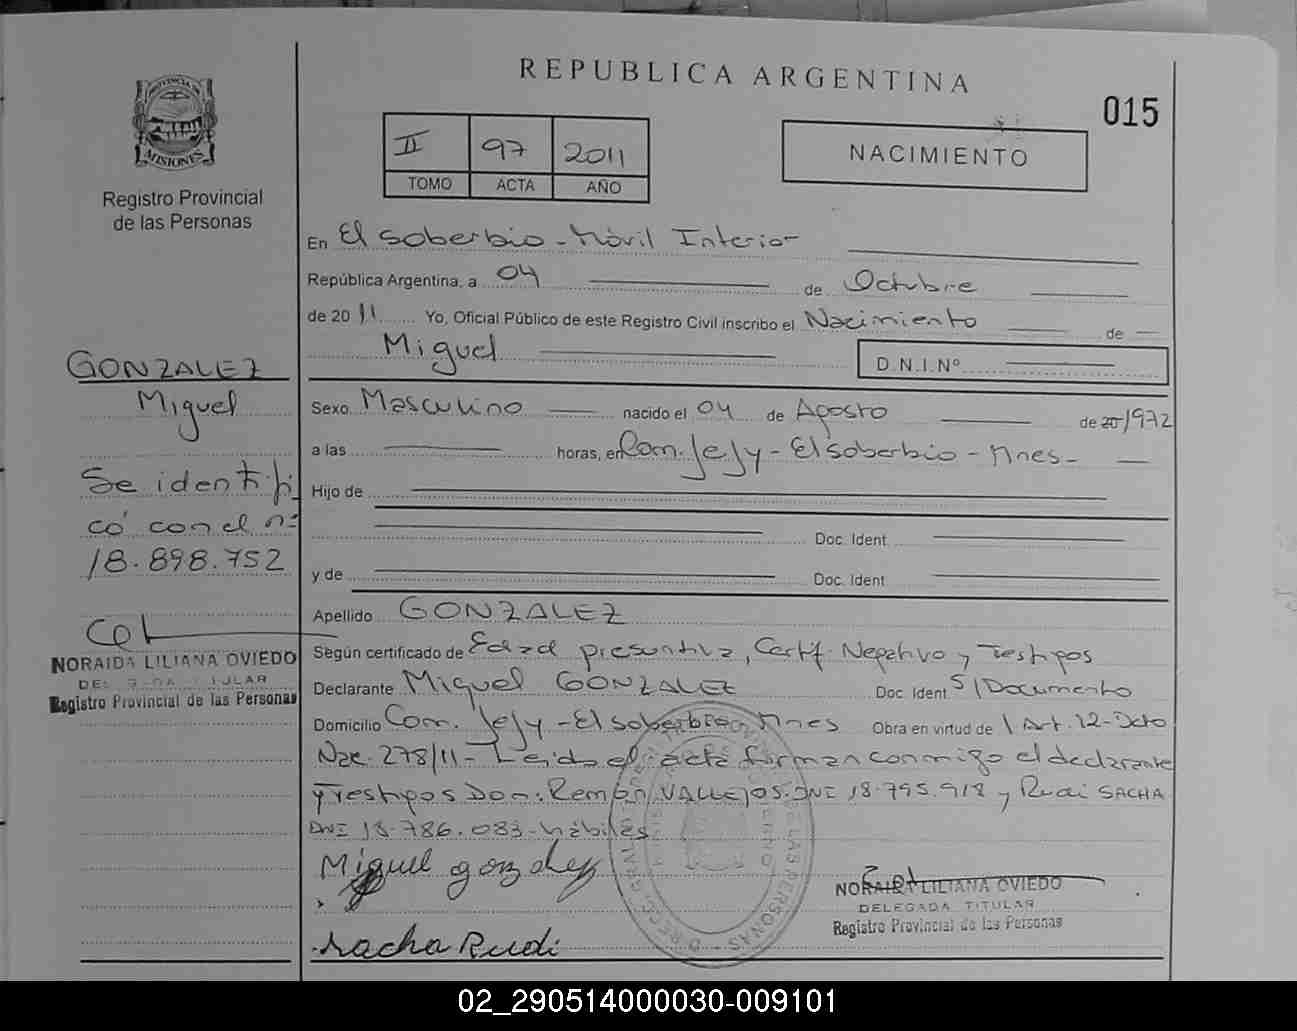 REPUBLICA ARGENTINA
015
PROVINCIA DE
MISIONES
Registro Provincial
de las Personas
II 97 2011
TOMO ACTA AÑO
NACIMIENTO
En El Soberbio - Móvil Interior
República Argentina, a 04 de Octubre
de 20 11 Yo, Oficial Público de este Registro Civil inscribo el Nacimiento de
Miguel D.N.I.Nº
Sexo Masculino nacido el 04 de Agosto de 20 /1972
a las horas, en Com. Jejy - El Soberbio - Mnes -
Hijo de
Doc. Ident.
y de Doc. Ident
Apellido GONZALEZ
Según certificado de Edad presuntiva, Certf. Negativo y Testigos
Declarante Miguel GONZALEZ Doc. Ident S/Documento
Domicilio Com. Jejy - El Soberbio - Mnes Obra en virtud de Art. 12 - Dcto
Nac. 278/11 - Leída el acta firman conmigo el declarante
y Testigos Don: Ramón VALLEJOS. DNI 18.795.918 y Rudi SACHA
DNI 18.786.083 - hábiles
Miguel gonzalez
sacha Rudi
NORAIDA LILIANA OVIEDO
DELEGADA TITULAR
Registro Provincial de las Personas
GONZALEZ
Miguel
Se identifi
có con el nº
18.898.752
NORAIDA LILIANA OVIEDO
Registro Provincial de las Personas
02_290514000030-009101